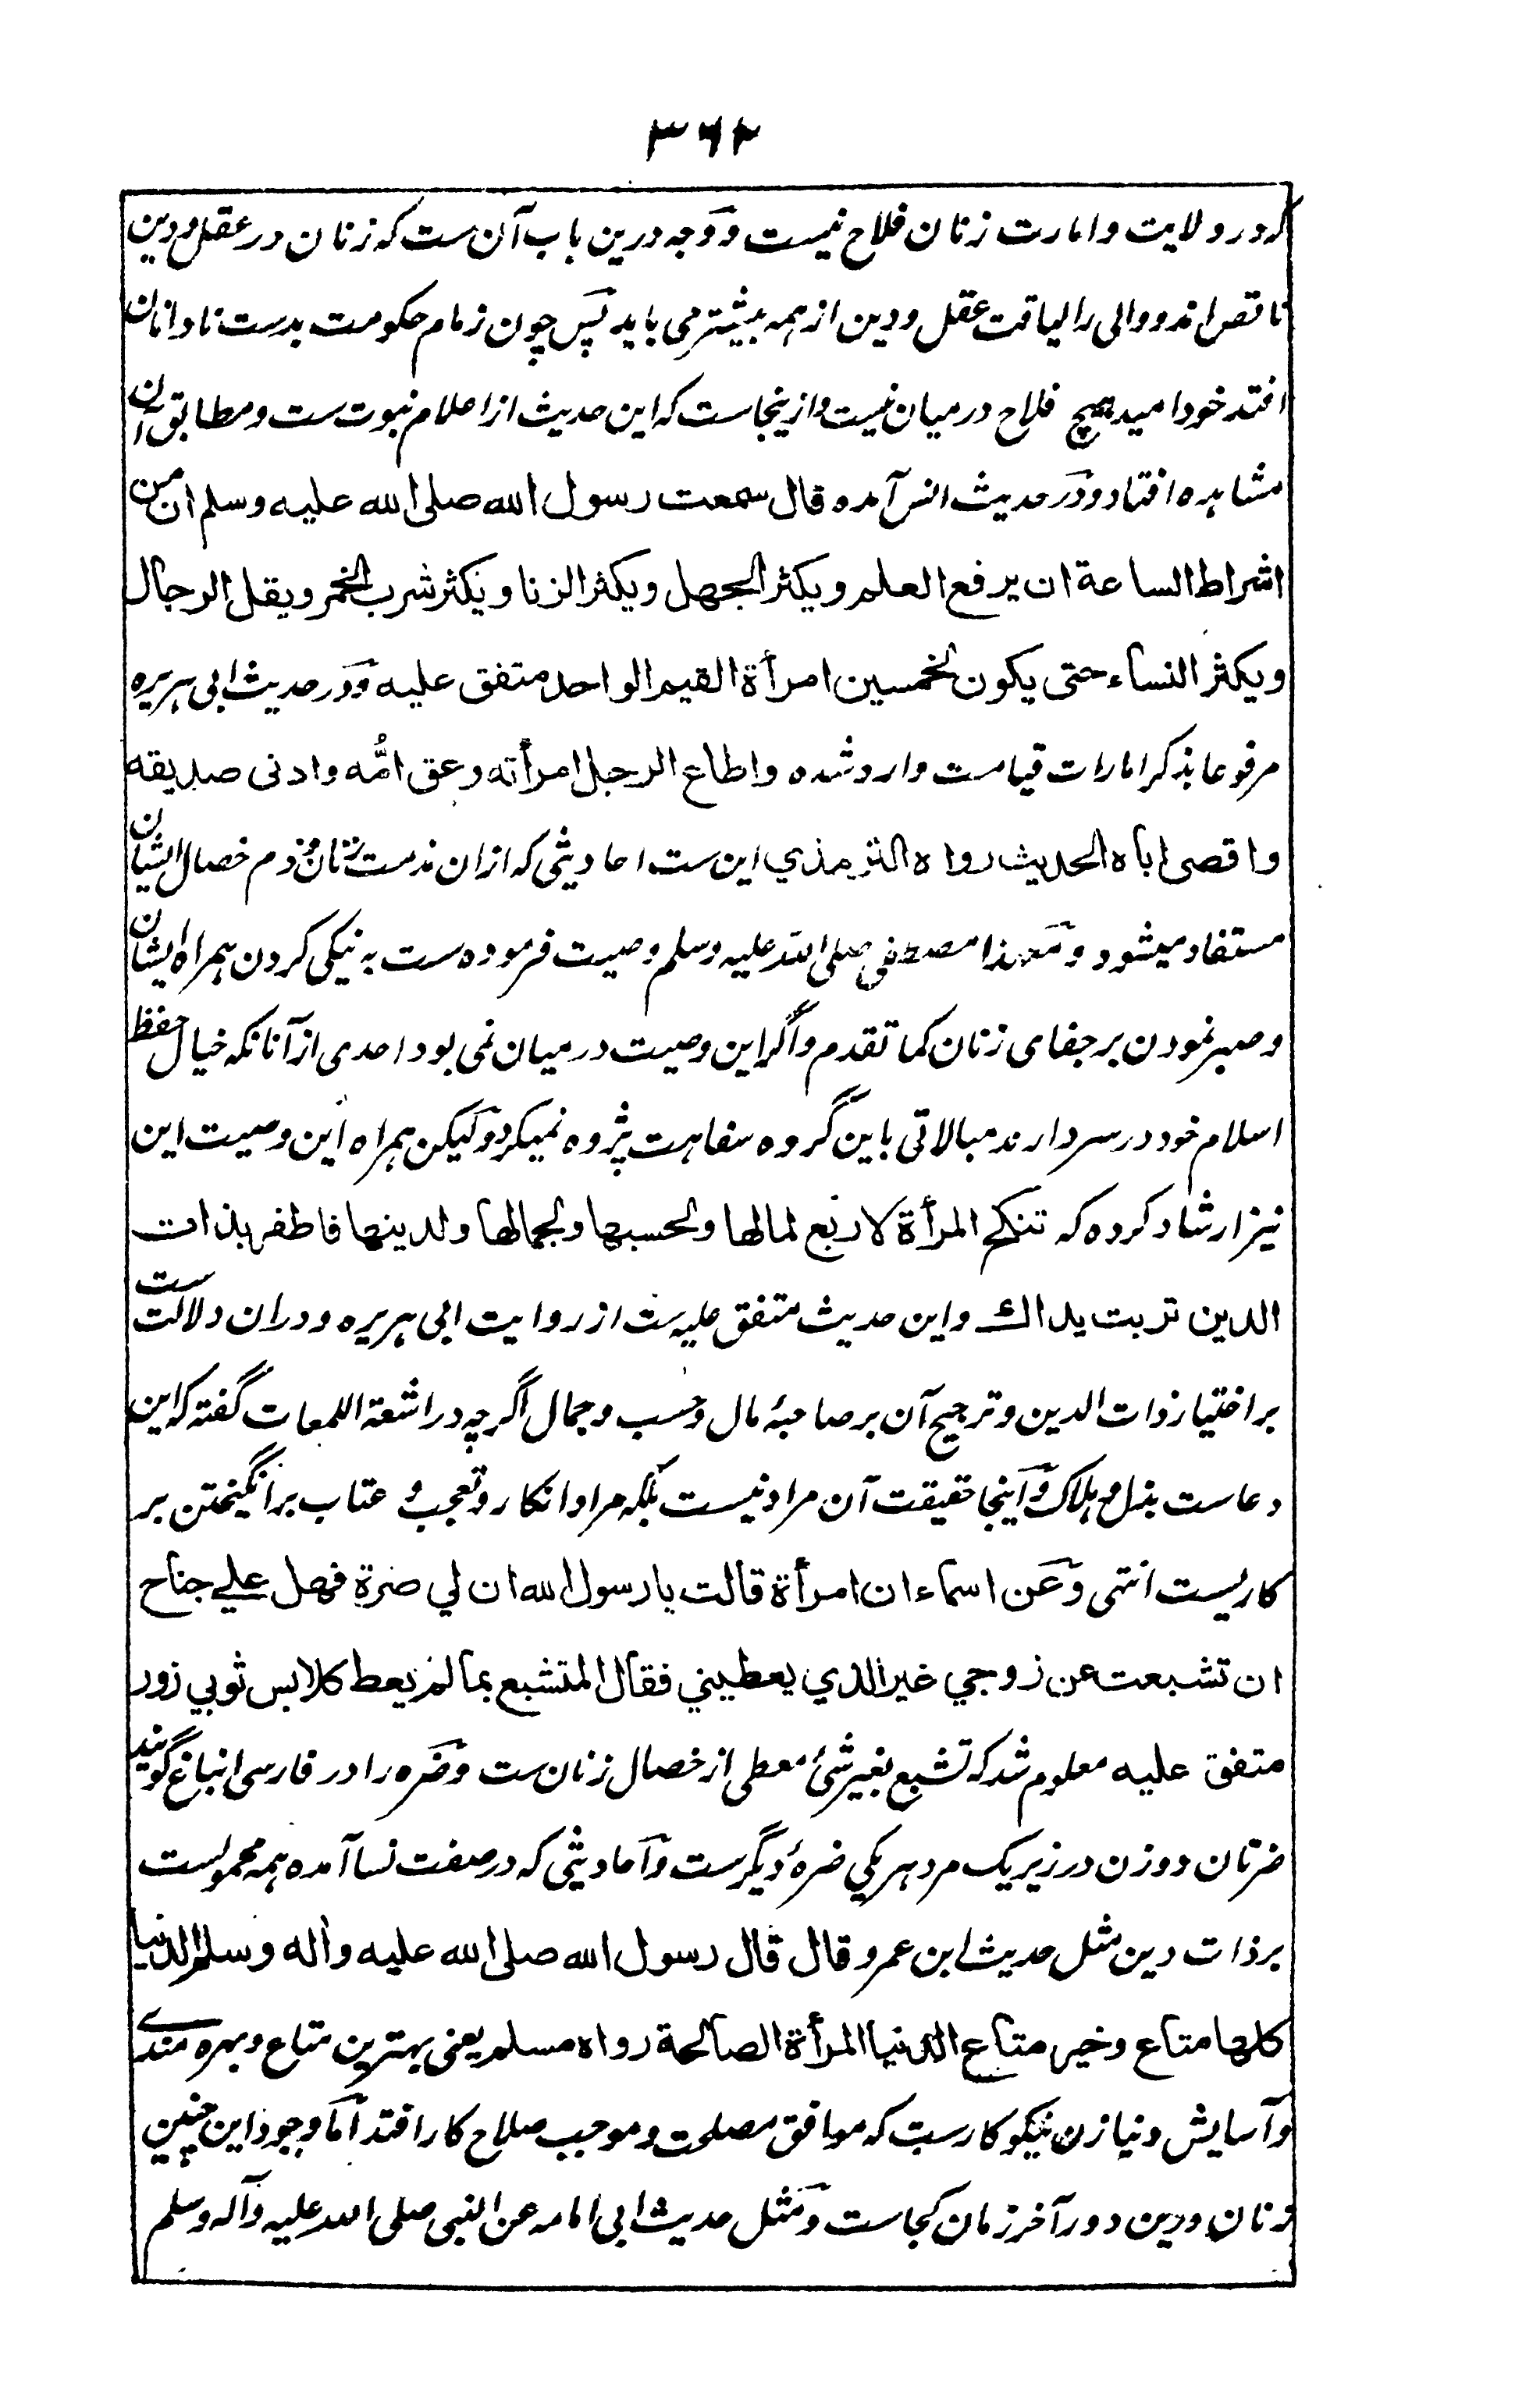 ۳۶۲
که در ولایت و امارت زنان فلاح نیست و وجه درین باب آن ست که زنان در عقل و دین
ناقص اند و والی را لیاقت عقل و دین از همه بیشتر می باید پس چون زمام حکومت بدست نادانان
افتد خود امید هیچ فلاح درمیان نیست و ازینجاست که این حدیث از اعلام نبوت ست و مطابق آن
مشاهده افتاد و در حدیث انس آمده قال سمعت رسول الله صلی الله علیه وسلم ان من
اشراط الساعة ان یرفع العلم ویکثر الجهل ویکثر الزنا ویکثر شرب الخمر ویقل الرجال
ویکثر النساء حتی یکون لخمسین امرأة القیم الواحد متفق علیه و در حدیث ابی هریره
مرفوعا بذکر امارات قیامت وارد شده واطاع الرجل امرأته وعق امُّه وادنی صدیقه
واقصی اباه الحدیث رواه الترمذي این ست احادیثی که ازان مذمت زنان و ذم خصال ایشان
مستفاد میشود و معهذا مصطفی صلی الله علیه وسلم وصیت فرموده ست به نیکی کردن همراه ایشان
و صبر نمودن بر جفای زنان کما تقدم و اگر این وصیت درمیان نمی بود احدی از آنانکه خیال حفظ
اسلام خود در سر دارند مبالاتی باین گروه سفاهت پژوه نمیکرد و لیکن همراه این وصیت این
نیز ارشاد کرده که تنکح المرأة لاربع لمالها ولحسبها ولجمالها ولدینها فاظفر بذات
الدین تربت یداك و این حدیث متفق علیه ست از روایت ابی هریره و دران دلالت ست
بر اختیار ذات الدین و ترجیح آن بر صاحبهٔ مال و حسب و جمال اگرچه در اشعة اللمعات گفته که این
دعاست بذل و هلاک و اینجا حقیقت آن مراد نیست بلکه مراد انکار و تعجب و عتاب بر انگیختن بر
کاریست انتهی و عن اسماء ان امرأة قالت یا رسول الله ان لي ضرة فهل علے جناح
ان تشبعت من زوجي غیر الذي یعطیني فقال المتشبع بما لم یعط کلابس ثوبي زور
متفق علیه معلوم شد که تشبع بغیر شئ معطی از خصال زنان ست و ضره را در فارسی انباغ گویند
ضرتان دو زن در زیر یک مرد هر یکي ضرهٔ دیگرست و احادیثی که در صفت نسا آمده همه محمولست
بر ذات دین مثل حدیث ابن عمرو قال قال رسول الله صلی الله علیه واٰله وسلم الدنیا
کلها متاع وخیر متاع الدنیا المرأة الصالحة رواه مسلم یعنی بهترین متاع و بهره مندے
و آسایش دنیا زن نیکو کارست که موافق مصلحت و موجب صلاح کار افتد اما وجود این چنین
زنان و دین دور آخر زمان کجاست و مثل حدیث ابی امامه عن النبی صلی الله علیه وآله وسلم